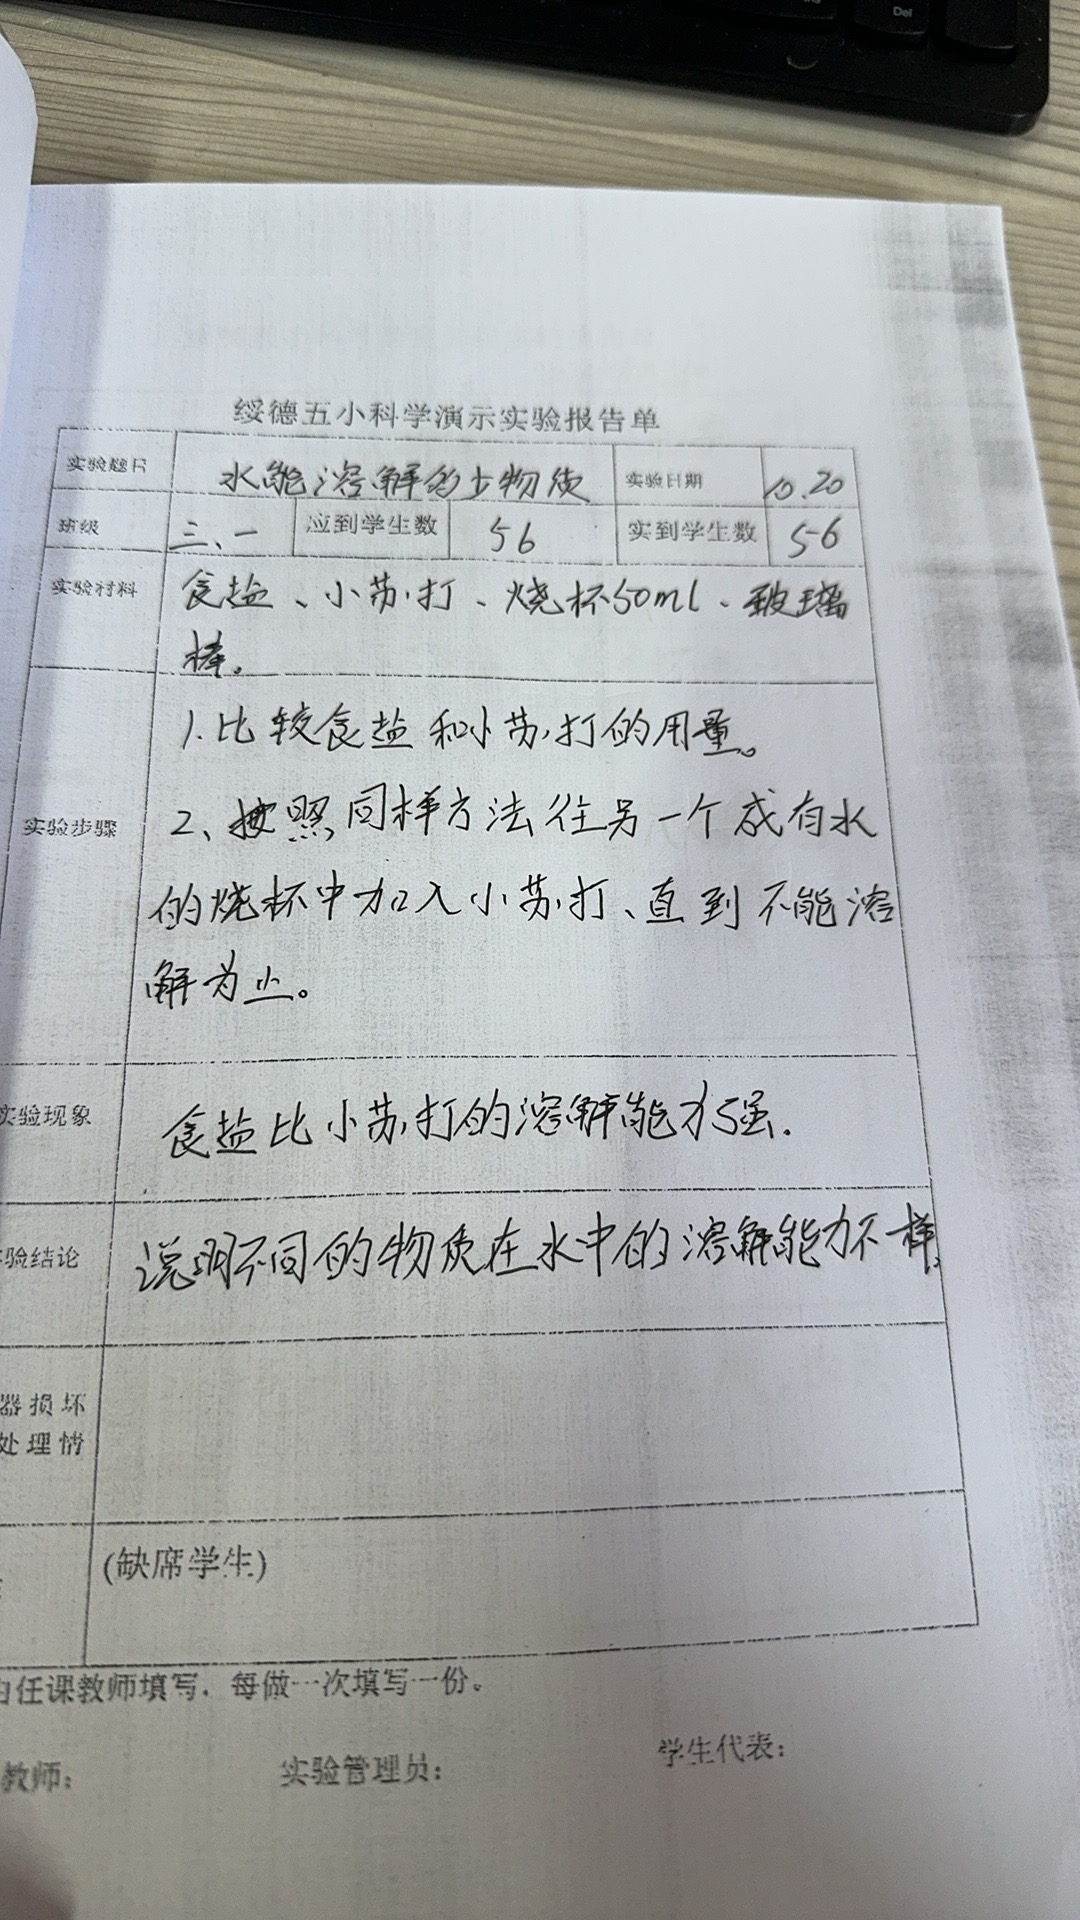 Del
绥德五小科学演示实验报告单
实验题目 水能溶解多少物质 实验日期 10.20
班级 三、一 应到学生数 56 实到学生数 56
实验材料 食盐、小苏打、烧杯50ml、玻璃
棒。
1.比较食盐和小苏打的用量。
实验步骤 2、按照同样方法往另一个成有水
的烧杯中加入小苏打、直到不能溶
解为止。
实验现象 食盐比小苏打的溶解能力强.
验结论 说明不同的物质在水中的溶解能力不一样。
器损坏
处理情
(缺席学生)
由任课教师填写，每做一次填写一份。
教师： 实验管理员： 学生代表：